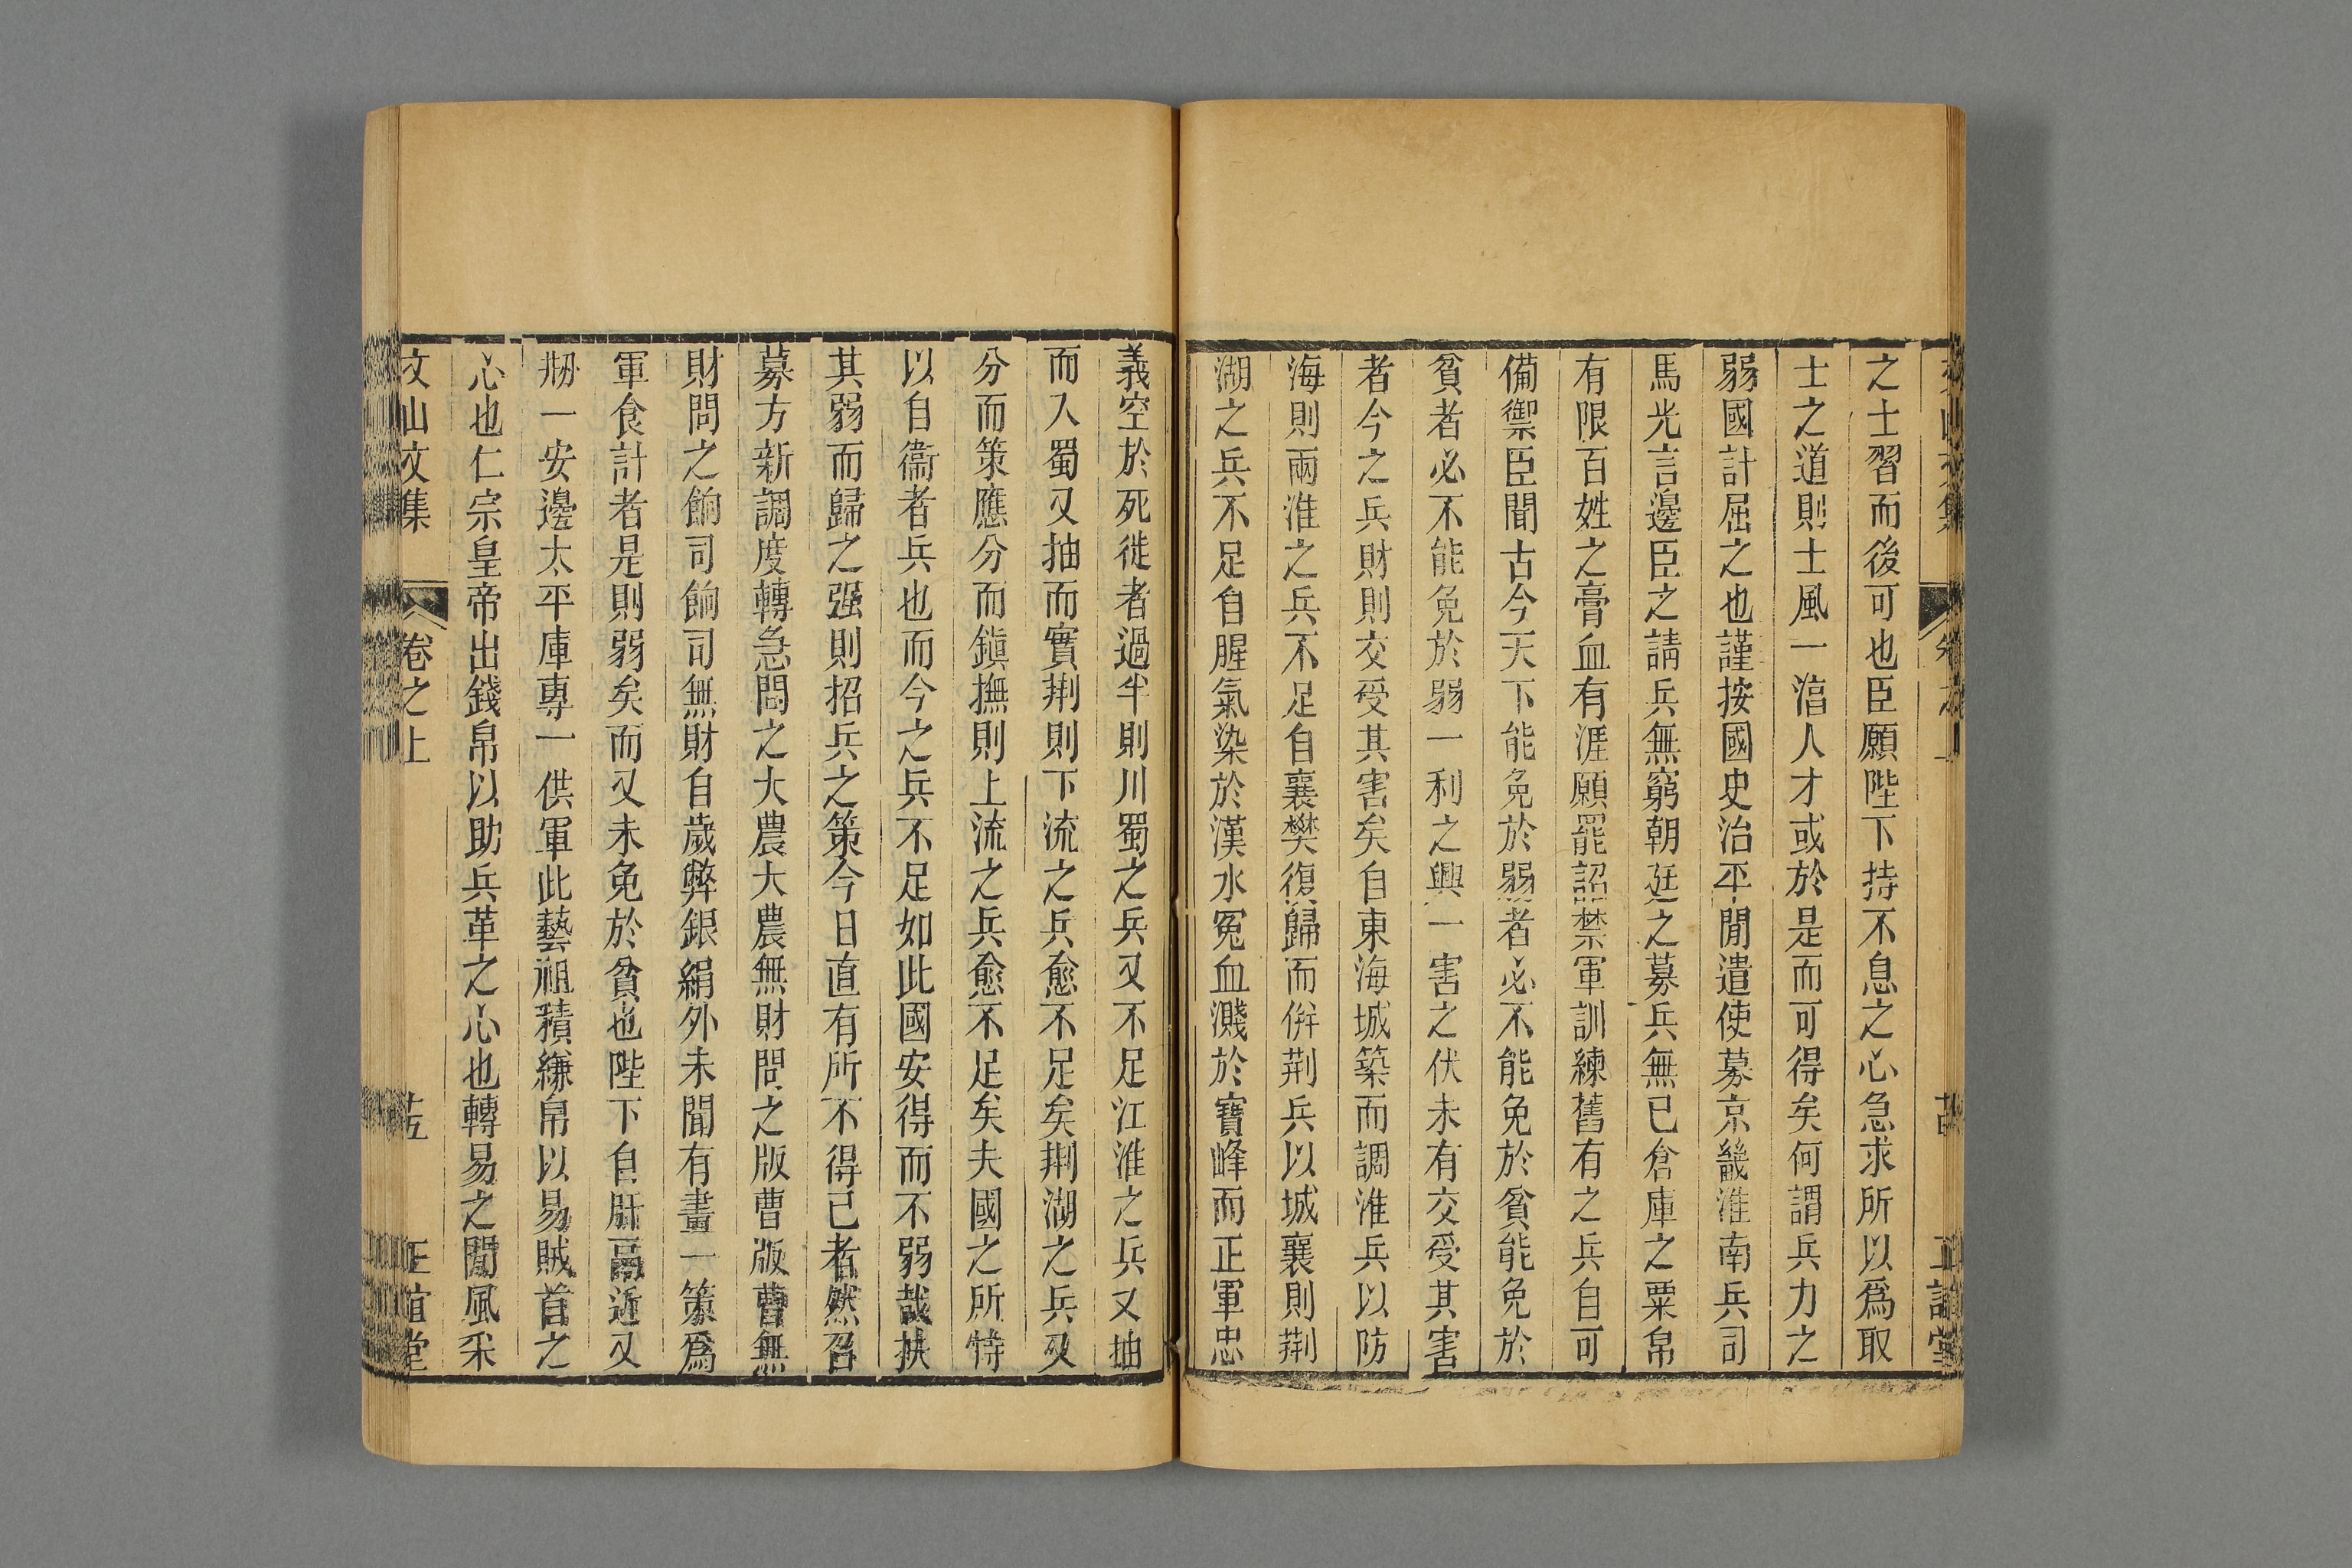 之士習而後可也臣願陛下持不息之心急求所以爲取
士之道則士風一淯人才或於是而可得矣何謂兵力之
弱國計屈之也謹按國史治平間遣使募京畿淮南兵司
馬光言邊臣之請兵無窮朝廷之募兵無已倉庫之粟帛
有限百姓之膏血有涯願罷詔禁軍訓練舊有之兵自可
備禦臣聞古今天下能免於弱者必不能免於貧能免於
貧者必不能免於弱一利之興一害之伏未有交受其害
者今之兵財則交受其害矣自東海城築而調淮兵以防
海則兩淮之兵不足自襄樊復歸而併荆兵以城襄則荆
湖之兵不足自腥氣染於漢水冤血濺於寶峰而正軍忠
義空於死徙者過半則川蜀之兵又不足江淮之兵又抽
而入蜀又抽而實荆則下流之兵愈不足矣荆湖之兵又
分而策應分而鎭撫則上流之兵愈不足矣夫國之所恃
以自衞者兵也而今之兵不足如此國安得而不弱哉扶
其弱而歸之强則招兵之策今日直有所不得已者然召
募方新調度轉急問之大農大農無財問之版曹版曹無
財問之餉司餉司無財自歲弊銀絹外未聞有畫一策爲
軍食計者是則弱矣而又未免於貧也陛下自肝鬲近又
剙一安邊太平庫專一供軍此藝祖積縑帛以易賊首之
心也仁宗皇帝出錢帛以助兵革之心也轉易之間風采
文山文集 卷之上 十五 正誼堂